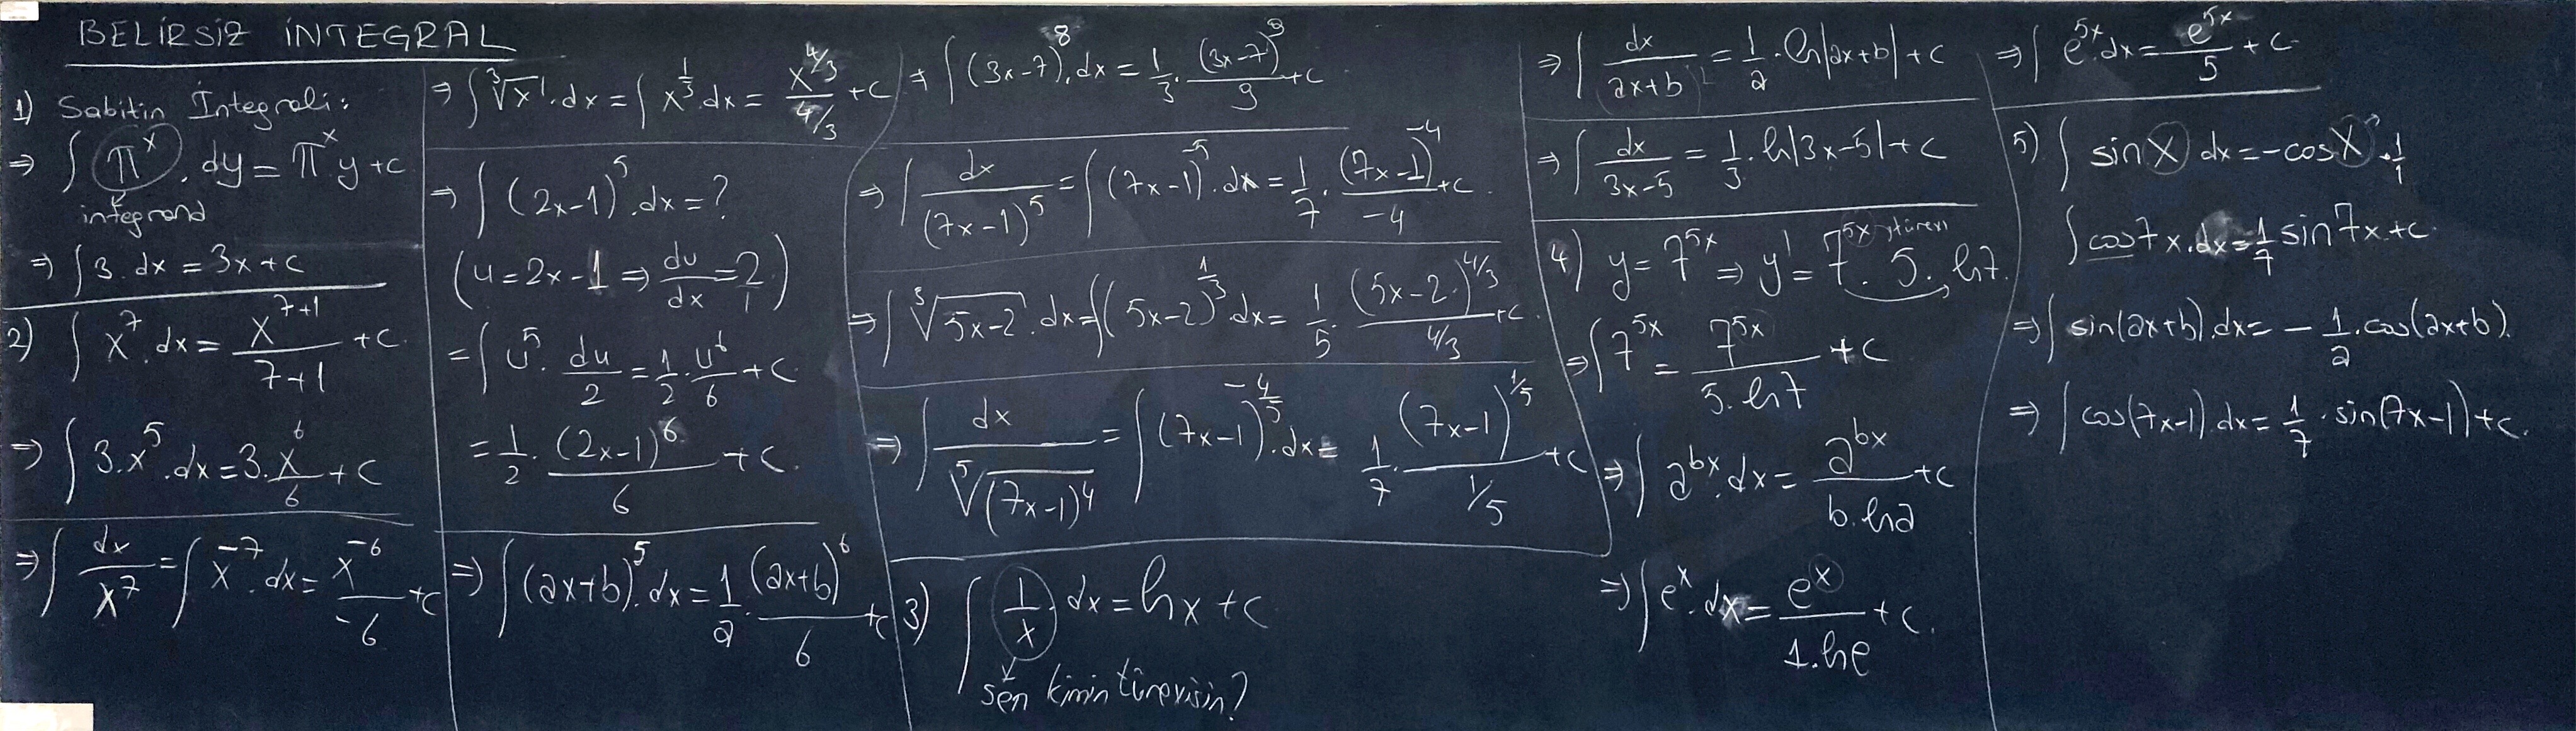 BELİRSİZ İNTEGRAL
1) Sabitin İntegrali:
⇒ ∫ π^x . dy = π^x y + c
integrand
⇒ ∫ 3 . dx = 3x + c
2) ∫ x^7 . dx = x^(7+1) / (7+1) + c
⇒ ∫ 3.x^5 . dx = 3. x^6 / 6 + c
⇒ ∫ dx / x^7 = ∫ x^-7 . dx = x^-6 / -6 + c
⇒ ∫ ³√x . dx = ∫ x^(1/3) . dx = x^(4/3) / (4/3) + c
⇒ ∫ (2x-1)^5 . dx = ?
(u = 2x-1 ⇒ du/dx = 2/1)
= ∫ u^5 . du/2 = 1/2 . u^6/6 + c
= 1/2 . (2x-1)^6 / 6 + c.
⇒ ∫ (ax+b)^5 . dx = 1/a . (ax+b)^6 / 6 + c
⇒ ∫ (3x-7)^8 . dx = 1/3 . (3x-7)^9 / 9 + c
⇒ ∫ dx / (7x-1)^5 = ∫ (7x-1)^-5 . dx = 1/7 . (7x-1)^-4 / -4 + c.
⇒ ∫ ³√(5x-2) . dx = ∫ (5x-2)^(1/3) . dx = 1/5 . (5x-2)^(4/3) / (4/3) + c
⇒ ∫ dx / ⁵√((7x-1)^4) = ∫ (7x-1)^(-4/5) . dx = 1/7 . (7x-1)^(1/5) / (1/5) + c
3) ∫ 1/x . dx = ln x + c
sen kimin türevisin?
⇒ ∫ dx / (ax+b) = 1/a . ln|ax+b| + c
⇒ ∫ dx / (3x-5) = 1/3 . ln|3x-5| + c
4) y = 7^5x ⇒ y' = 7^5x . 5 . ln7.
türevi
⇒ ∫ 7^5x = 7^5x / (5.ln7) + c
⇒ ∫ a^bx . dx = a^bx / (b.lna) + c
⇒ ∫ e^x . dx = e^x / (1.lne) + c.
⇒ ∫ e^5x . dx = e^5x / 5 + c
5) ∫ sin x dx = -cos x . 1/1
∫ cos7x . dx = 1/7 sin7x + c
⇒ ∫ sin(ax+b) . dx = - 1/a . cos(ax+b).
⇒ ∫ cos(7x-1) . dx = 1/7 . sin(7x-1) + c.